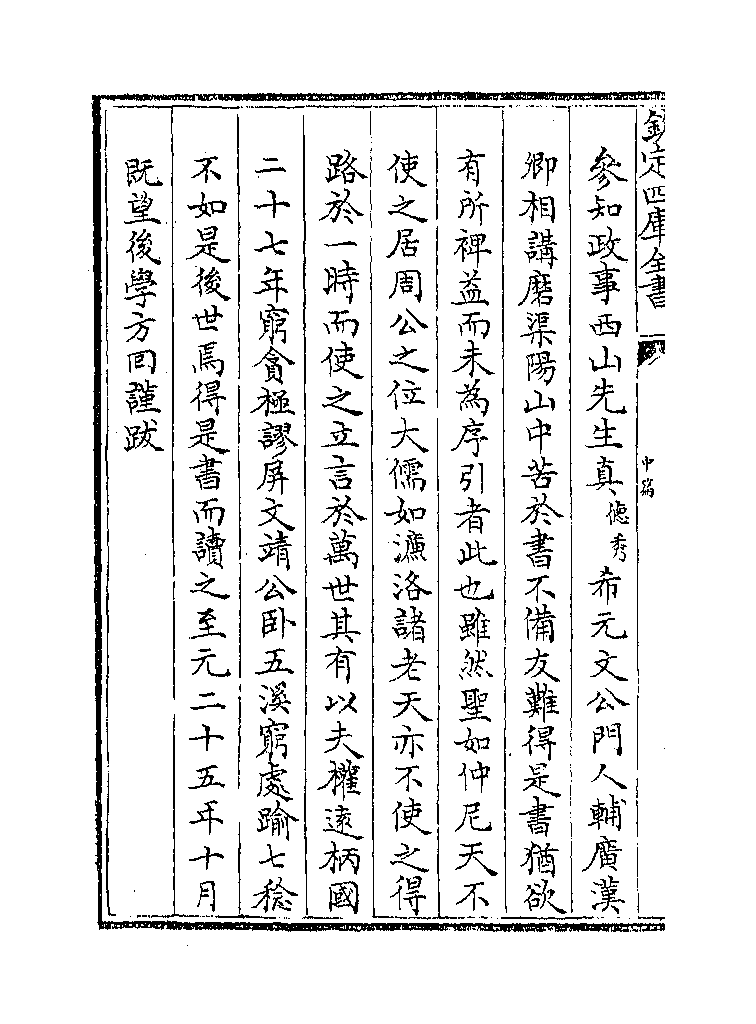 欽定四庫全書
中篇
參知政事西山先生真德秀希元文公門人輔廣漢
卿相講磨渠陽山中苦於書不備友難得是書猶欲
有所裨益而未為序引者此也雖然聖如仲尼天不
使之居周公之位大儒如濂洛諸老天亦不使之得
路於一時而使之立言於萬世其有以夫權遠柄國
二十七年窮貪極謬屏文靖公卧五溪窮處踰七稔
不如是後世焉得是書而讀之至元二十五年十月
既望後學方回謹跋